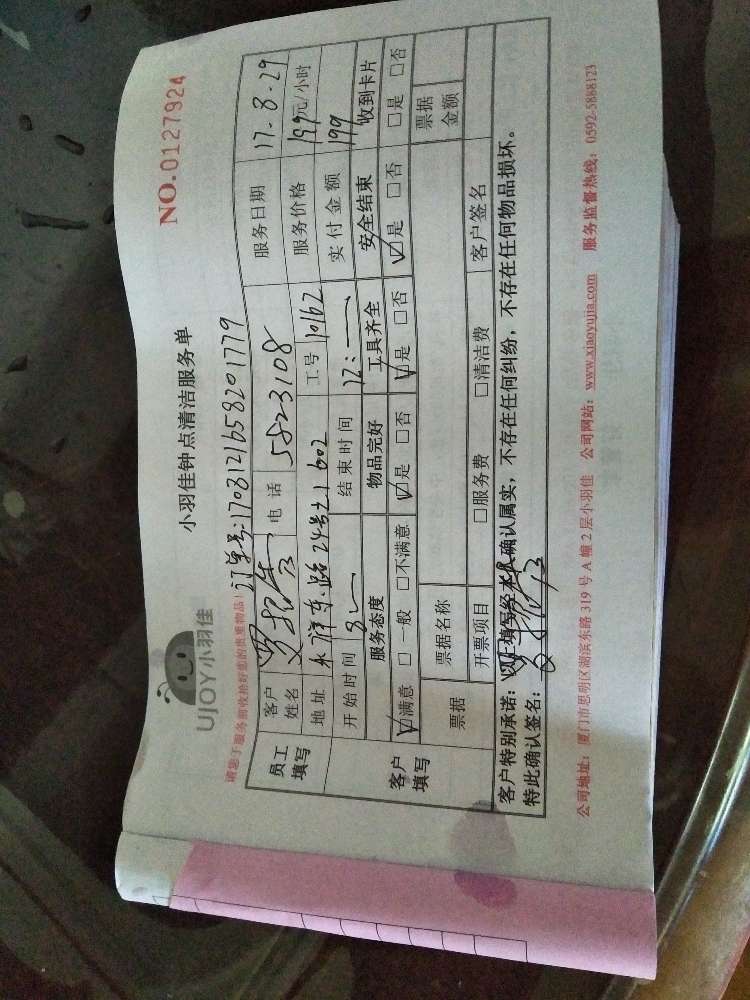 UJOY小羽佳
小羽佳钟点清洁服务单
NO.0127924
请您于服务前收拾好您的贵重物品!
订单号:1708121658201779
员工填写
客户姓名 电话 5823108 服务日期 17.8.29
地址 路24号之1 602 工号 10162 服务价格 199元/小时
开始时间 8:— 结束时间 12:— 实付金额 199
客户填写
服务态度 物品完好 工具齐全 安全结束 收到卡片
☑满意 □一般 □不满意 ☑是 □否 ☑是 □否 ☑是 □否 □是 □否
票据 票据名称 票据金额
开票项目 □服务费 □清洁费 客户签名
客户特别承诺:以上填写经本人确认属实,不存在任何纠纷,不存在任何物品损坏。
特此确认签名:
公司地址:厦门市思明区湖滨东路319号A幢2层小羽佳 公司网站:www.xiaoyujia.com 服务监督热线:0592-5888123